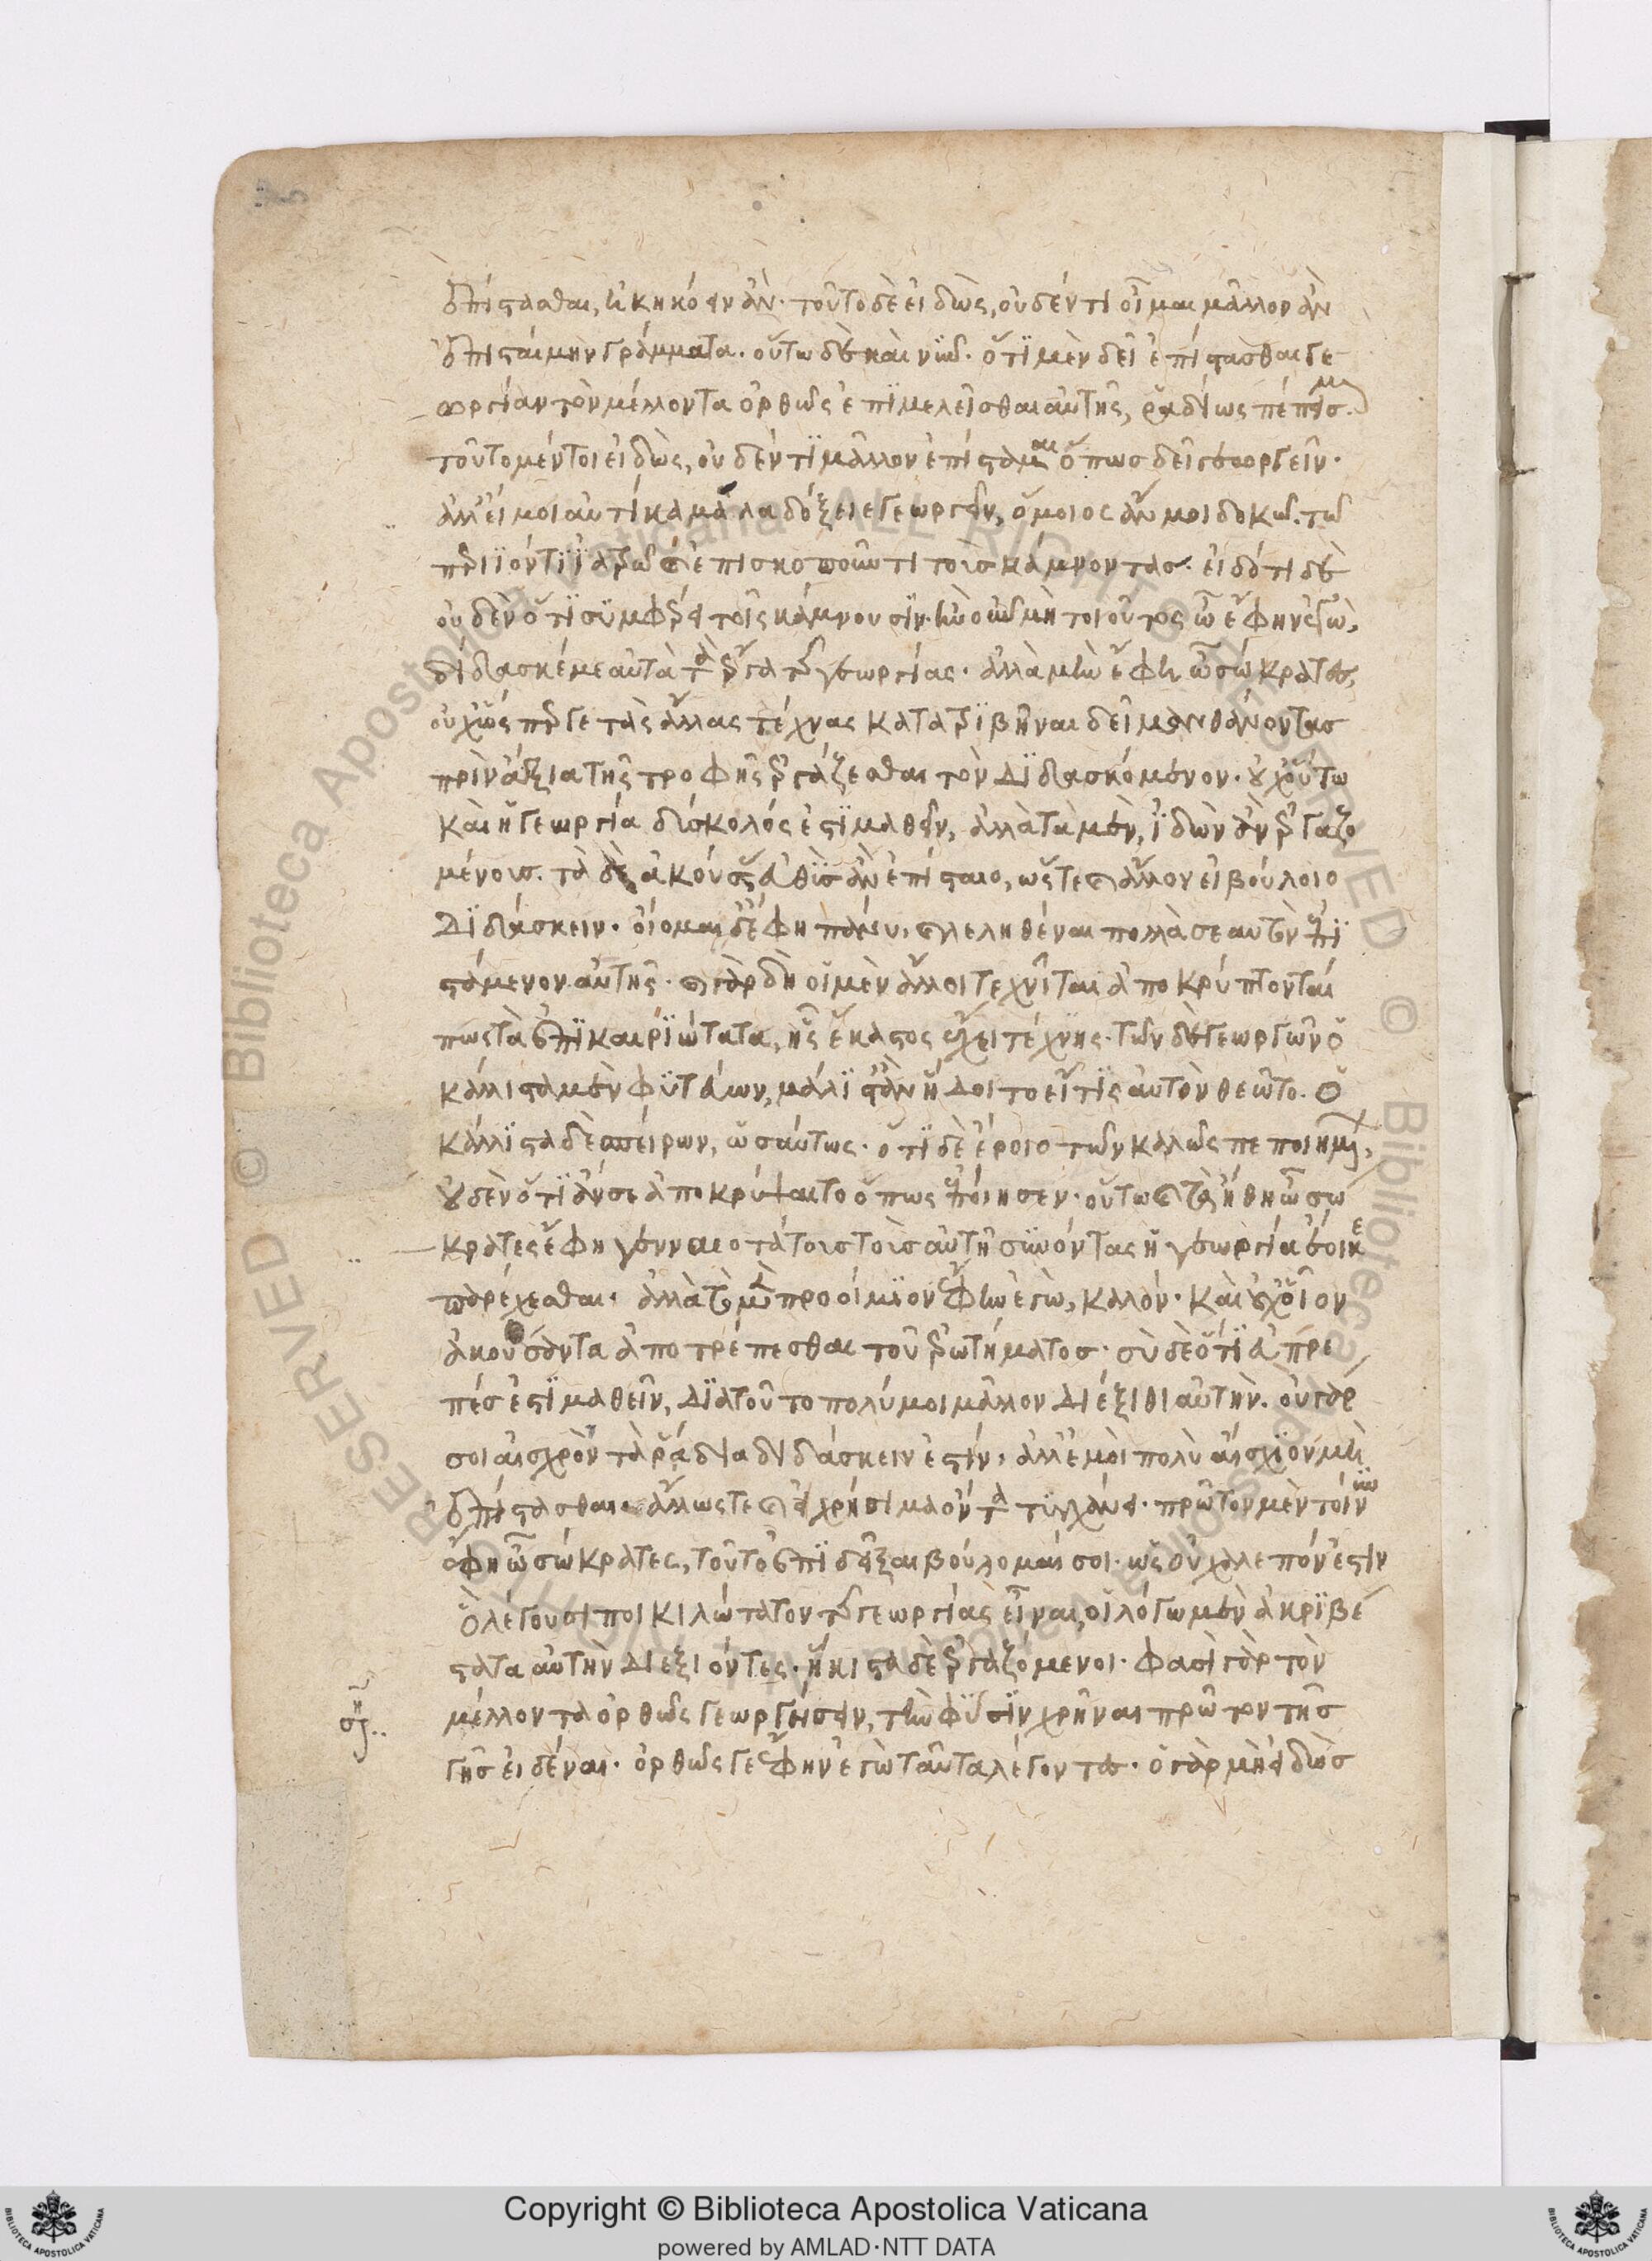 ἐπίστασθαι, ἠκηκόειν ἄν· τοῦτο δὲ εἰδὼς, οὐδέν τι οἶμαι μᾶλλον ἂν
ἐπισταίμην γράμματα. οὕτω δὲ καὶ νῦν. ὅτι μὲν δεῖ ἐπίστασθαι γε
ωργίαν τὸν μέλλοντα ὀρθῶς ἐπιμελεῖσθαι αὐτῆς, ῥαδίως πέπεισμαι.
τοῦτο μέντοι εἰδὼς, οὐδέν τι μᾶλλον ἐπίσταμαι ὅπως δεῖ γεωργεῖν.
ἀλλ' εἴ μοι αὐτίκα μάλα δόξειε γεωργεῖν, ὅμοιος ἄν μοι δοκῶ. τῶ
περιϊόντι ἰατρῶ καὶ ἐπισκοποῦντι τοὺς κάμνοντας. εἰδότι δὲ
οὐδὲν ὅτι συμφέρει τοῖς κάμνουσιν. ἵν' οὖν μὴ τοιοῦτος ὦ ἔφην ἐγὼ,
δίδασκέ με αὐτὰ τὰ ἔργα τῆς γεωργίας. ἀλλὰ μὴν ἔφη ὦ σώκρατες,
οὐχ ὥς περ γε τὰς ἄλλας τέχνας κατατριβῆναι δεῖ μανθάνοντας
πρὶν ἄξια τῆς τροφῆς ἐργάζεσθαι τὸν διδασκόμενον. οὐχ οὕτω
καὶ ἡ γεωργία δύσκολός ἐστι μαθεῖν, ἀλλὰ τὰ μὲν, ἰδὼν ἂν ἐργαζο
μένους. τὰ δὲ ἀκούσας εὐθὺς ἂν ἐπίσταιο, ὥστε καὶ ἄλλον εἰ βούλοιο
διδάσκειν. οἴομαι δ' ἔφη πάνυ, καὶ λεληθέναι πολλὰ σεαυτὸν ἐπι
στάμενον αὐτῆς. καὶ γὰρ δὴ οἱ μὲν ἄλλοι τεχνῖται ἀποκρύπτονταί
πως τὰ ἐπικαιριώτατα, ἧς ἕκαστος ἔχει τέχνης. τῶν δὲ γεωργῶν ὁ
κάλλιστα μὲν φυτεύων, μάλιστ' ἂν ἥδοιτο εἴ τις αὐτὸν θεῶτο. ὁ
κάλλιστα δὲ σπείρων, ὡσαύτως. ὅτι δὲ ἔροιο τῶν καλῶς πεποιημένων,
οὐδὲν ὅτι ἄν σε ἀποκρύψαιτο ὅπως ἐποίησεν. οὕτω καὶ τὰ ἤθη ὦ σώ
κρατες ἔφη γενναιοτάτους τοὺς αὐτῆ συνόντας ἡ γεωργία ἔοικε
παρέχεσθαι. ἀλλὰ τὸ μὲν προοίμιον ἔφην ἐγὼ, καλόν. καὶ οὐχ οἷον
ἀκούσαντα ἀποτρέπεσθαι τοῦ ἐρωτήματος. σὺ δὲ ὅτι εὐπε
τές ἐστι μαθεῖν, διὰ τοῦτο πολύ μοι μᾶλλον διέξιθι αὐτήν. οὐ γὰρ
σοι αἰσχρὸν τὰ ῥάδια διδάσκειν ἐστίν, ἀλλ' ἐμοὶ πολὺ αἴσχιον μὴ
ἐπίστασθαι. ἄλλως τε καὶ εἰ χρήσιμα ὄντα τυγχάνει. πρῶτον μὲν τοίνυν
ἔφη ὦ σώκρατες, τοῦτο ἐπιδεῖξαι βούλομαί σοι. ὡς οὐ χαλεπόν ἐστιν
ὃ λέγουσι ποικιλώτατον τῆς γεωργίας εἶναι, οἱ λόγω μὲν ἀκριβέ
στατα αὐτὴν διεξιόντες. ἥκιστα δὲ ἐργαζόμενοι. φασὶ γὰρ τὸν
μέλλοντα ὀρθῶς γεωργήσειν, τὴν φύσιν χρῆναι πρῶτον τῆς
γῆς εἰδέναι. ὀρθῶς γε ἔφην ἐγὼ ταῦτα λέγοντες. ὁ γὰρ μὴ εἰδὼς
Copyright © Biblioteca Apostolica Vaticana
powered by AMLAD·NTT DATA